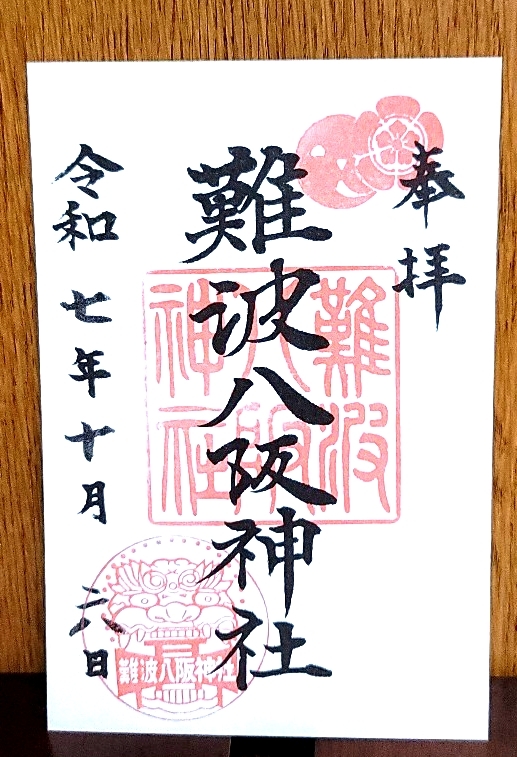 奉拝
難波八阪神社
難波八阪神社
難波八阪神社
令和七年十月二八日